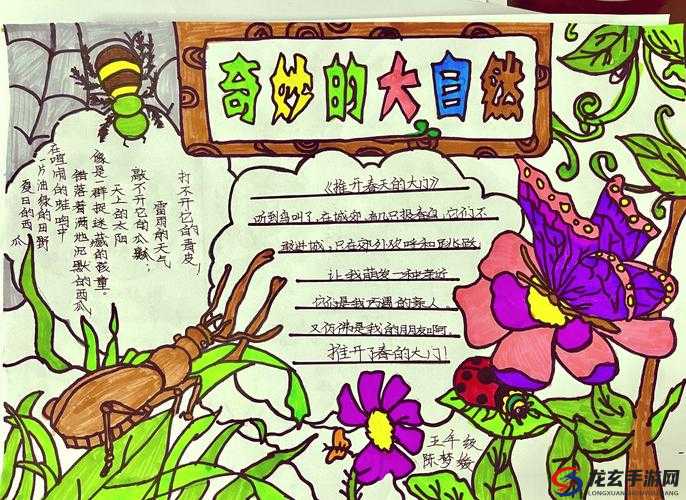 奇妙的大自然
打不开它的青皮，
雷雨的天气
敲不开它的瓜瓤；
天上的太阳
像是一群捉迷藏的孩童。
错落着满地沉默的西瓜
在喧闹的蛙鸣中
一片油绿的田野
夏日的西瓜
《推开春天的大门》
听到鸟叫了，在城郊，有几只报春鸟，它们不
敢进城，只在郊外欢呼和跳跃
让我萌发一种亲近
它们是我的亲人
又仿佛是我的朋友啊，
推开了春的大门！
五年级
陈梦
龙玄手游网
LONGXUANSHOUYOUWANG